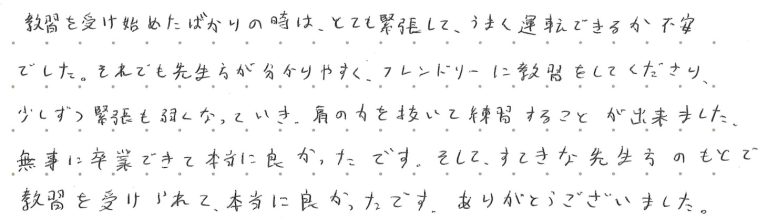 教習を受け始めたばかりの時は、とても緊張して、うまく運転できるか不安
でした。それでも先生方が分かりやすく、フレンドリーに教習をしてくださり、
少しずつ緊張も弱くなっていき、肩の力を抜いて練習することが出来ました。
無事に卒業できて本当に良かったです。そして、すてきな先生方のもとで
教習を受けられて、本当に良かったです。ありがとうございました。